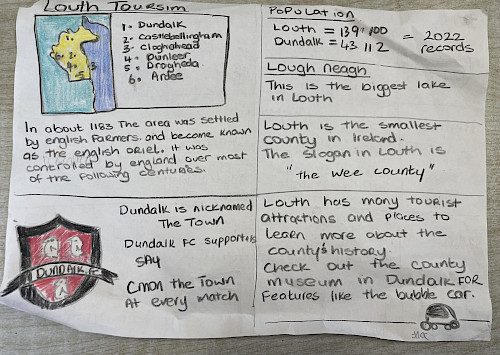 Louth Toursim
1. Dundalk
2. Castlebellingham
3. Cloghehead
4. Dunleer
5. Drogheda
6. Ardee
In about 1183 The area was settled
by english farmers. and become known
as the english oriel. It was
controlled by england over most
of the following centuries.
Dundalk is nicknamed
The Town
Dundalk FC supporters
say
Cmon the Town
At every match
DUNDALK F
POPULATION
Louth = 139,100
Dundalk = 43 112
= 2022
records
Lough neagh
This is the biggest lake
in Louth
Louth is the smallest
county in Ireland.
The slogan in Louth is
"the wee county"
Louth has many tourist
attractions and places to
learn more about the
county's history.
Check out the county
museum in Dundalk FOR
Features like the bubble car.